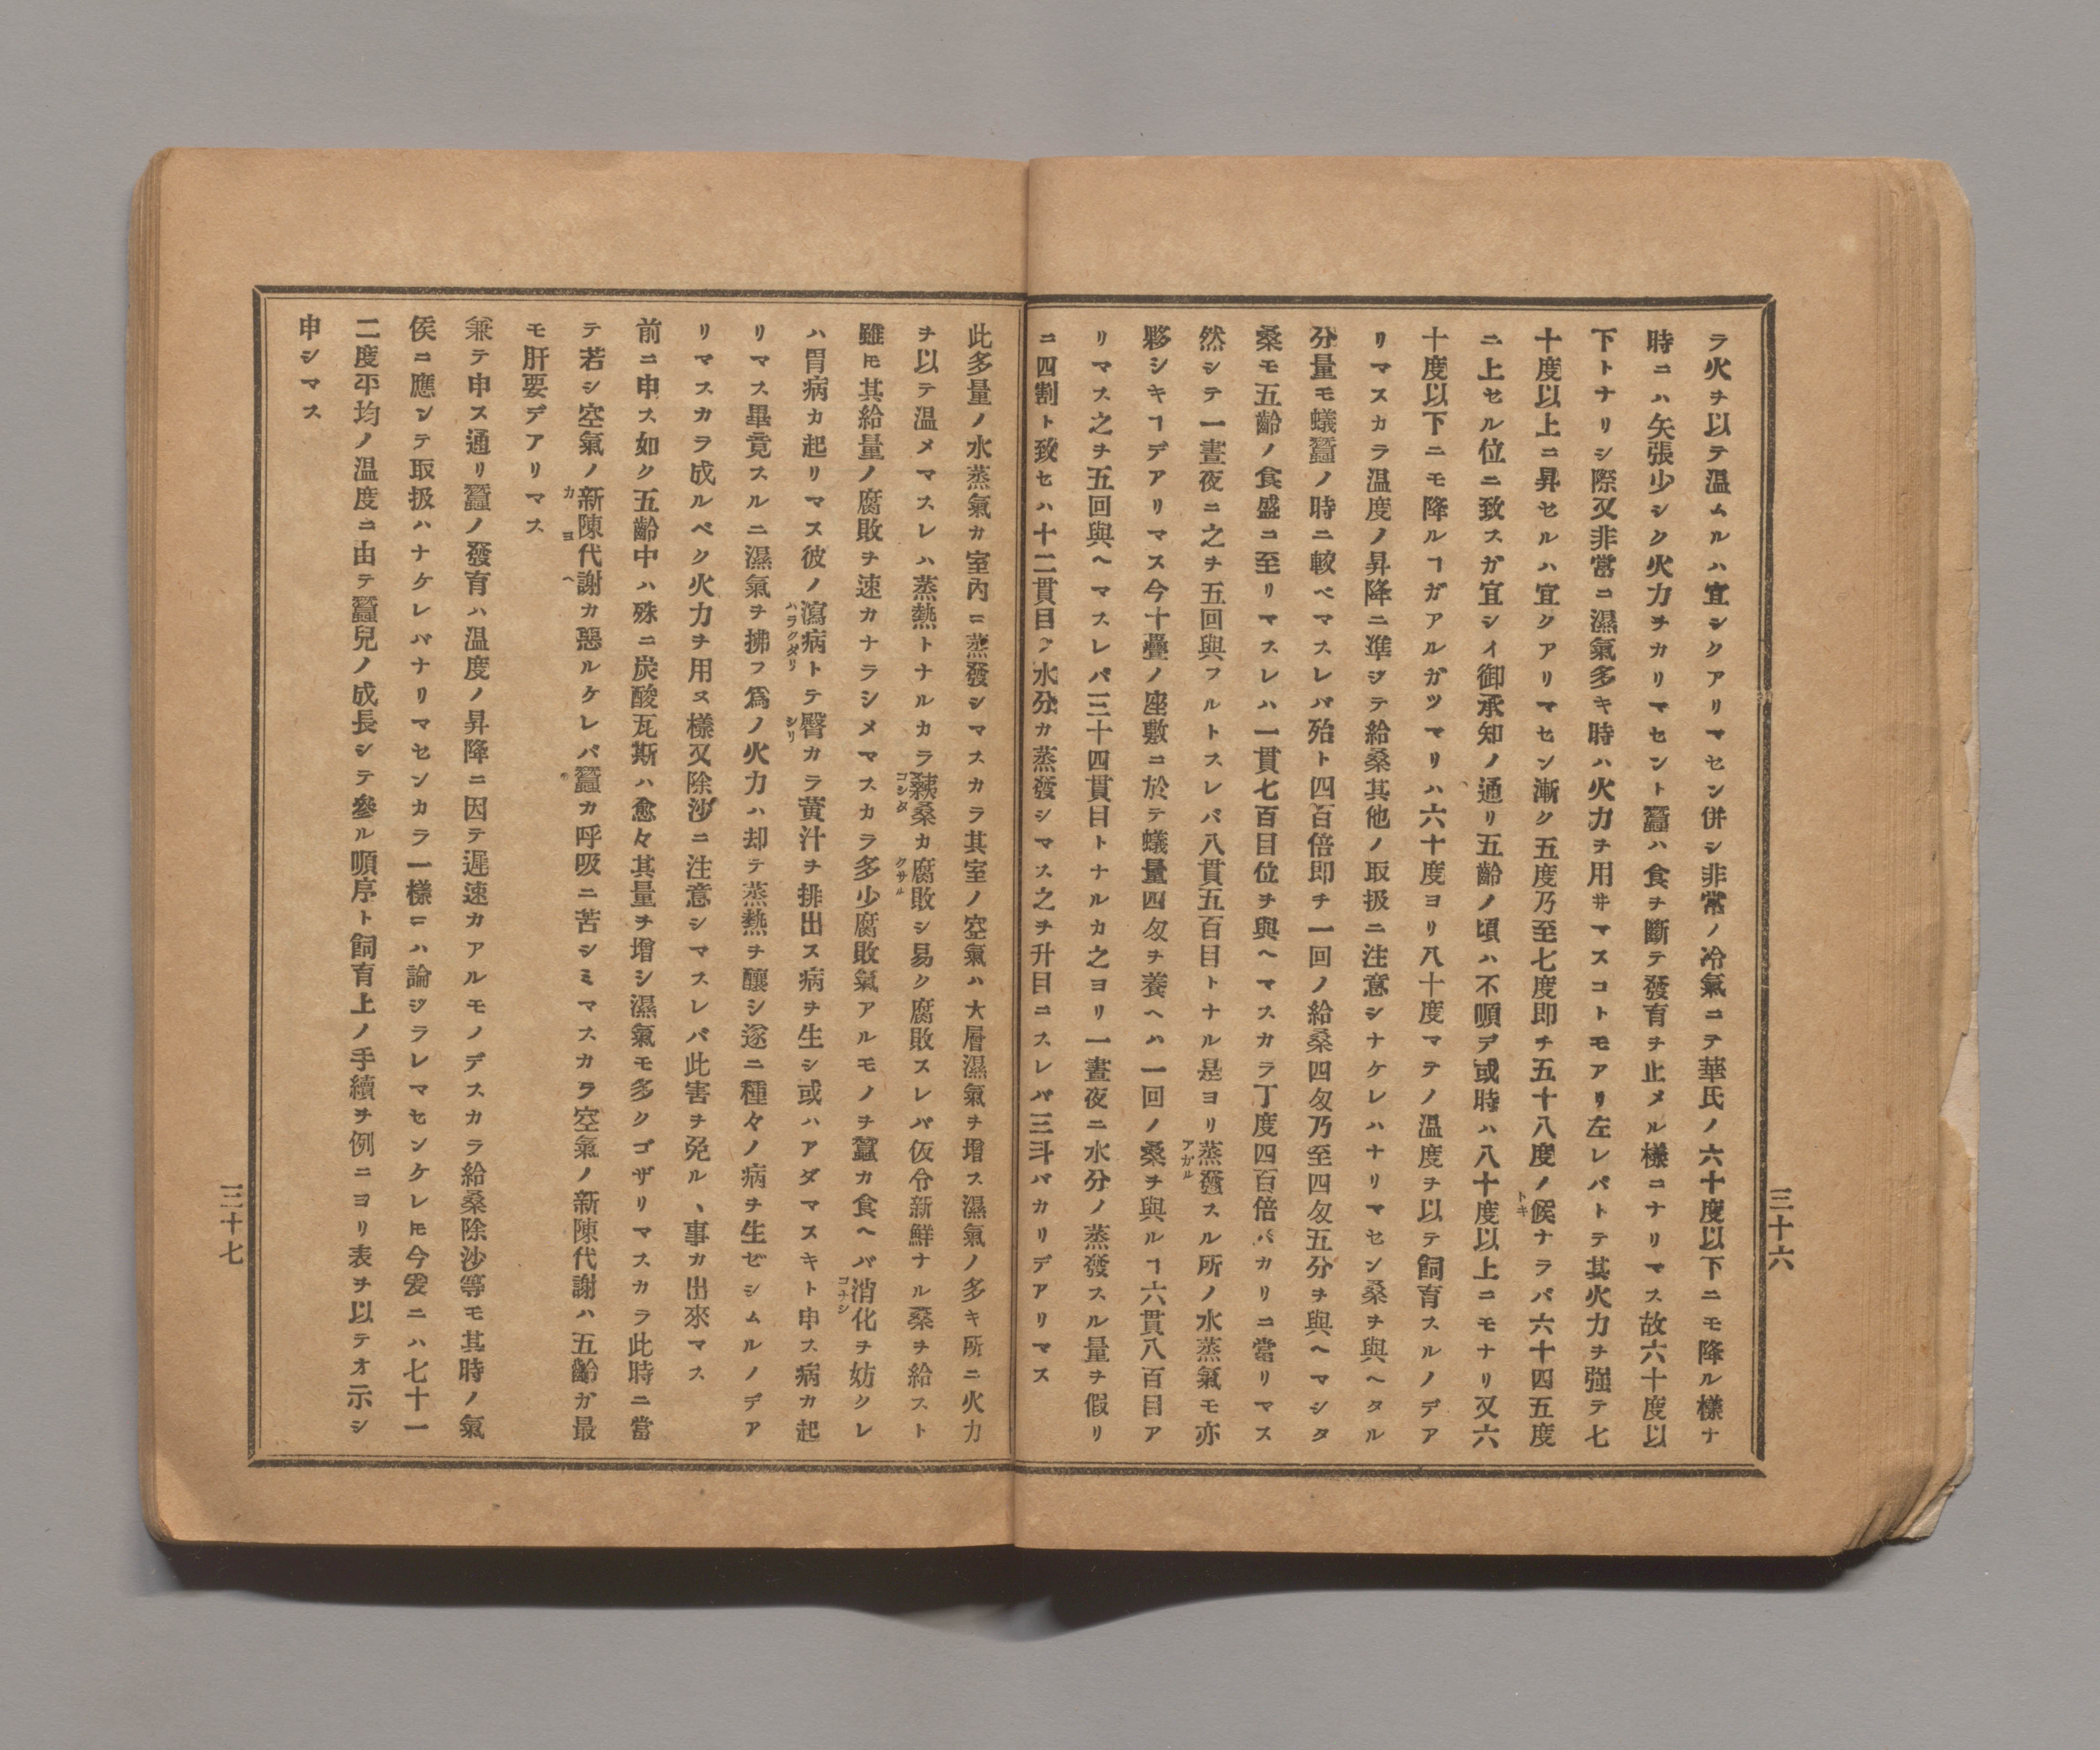 ラ火ヲ以テ温ムルハ宜シクアリマセン併シ非常ノ冷氣ニテ華氏ノ六十度以下ニモ降ル樣ナ
時ニハ矢張少シク火力ヲカリマセント蠶ハ食ヲ斷テ發育ヲ止メル樣ニナリマス故六十度以
下トナリシ際又非常ニ濕氣多キ時ハ火力ヲ用井マスコトモアリ左レバトテ其火力ヲ强テ七
十度以上ニ昇セルハ宜クアリマセン漸ク五度乃至七度即チ五十八度ノ候ナラバ六十四五度
トキ
ニ上セル位ニ致スガ宜シイ御承知ノ通リ五齡ノ頃ハ不順デ或時ハ八十度以上ニモナリ又六
十度以下ニモ降ルヿガアルガツマリハ六十度ヨリ八十度マテノ温度ヲ以テ飼育スルノデア
リマスカラ温度ノ昇降ニ準ジテ給桑其他ノ取扱ニ注意シナケレハナリマセン桑ヲ與ヘタル
分量モ蟻蠶ノ時ニ較ベマスレバ殆ト四百倍即チ一回ノ給桑四匁乃至四匁五分ヲ與ヘマシタ
桑モ五齡ノ食盛ニ至リマスレハ一貫七百目位ヲ與ヘマスカラ丁度四百倍バカリニ當リマス
然シテ一晝夜ニ之ヲ五回與フルトスレバ八貫五百目トナル是ヨリ蒸發スル所ノ水蒸氣モ亦
アガル
夥シキヿデアリマス今十疊ノ座敷ニ於テ蟻量四匁ヲ養ヘハ一回ノ桑ヲ與ルヿ六貫八百目ア
リマス之ヲ五回與ヘマスレバ三十四貫目トナルカ之ヨリ一晝夜ニ水分ノ蒸發スル量ヲ假リ
ニ四割ト致セハ十二貫目ノ水分カ蒸發シマス之ヲ升目ニスレバ三斗バカリデアリマス
三十六
此多量ノ水蒸氣カ室內ニ蒸發シマスカラ其室ノ空氣ハ大層濕氣ヲ增ス濕氣ノ多キ所ニ火力
ヲ以テ温メマスレハ蒸熱トナルカラ桑カ腐敗シ易ク腐敗スレバ仮令新鮮ナル桑ヲ給スト
コシタ
クサル
雖モ其給量ノ腐敗ヲ速カナラシメマスカラ多少腐敗氣アルモノヲ蠶カ食ヘバ消化ヲ妨クレ
コナシ
ハ胃病カ起リマス彼ノ瀉病トテ臀カラ黄汁ヲ排出ス病ヲ生シ或ハアダマスキト申ス病カ起
ハラクダリ
シリ
リマス畢竟スルニ濕氣ヲ拂フ爲ノ火力ハ却テ蒸熱ヲ釀シ遂ニ種々ノ病ヲ生ゼシムルノデア
リマスカラ成ルベク火力ヲ用ヌ樣又除沙ニ注意シマスレバ此害ヲ免ル、事カ出來マス
前ニ申ス如ク五齡中ハ殊ニ炭酸瓦斯ハ愈々其量ヲ增シ濕氣モ多クゴザリマスカラ此時ニ當
テ若シ空氣ノ新陳代謝カ惡ルケレバ蠶カ呼吸ニ苦シミマスカラ空氣ノ新陳代謝ハ五齡ガ最
カヨヘ
モ肝要デアリマス
兼テ申ス通リ蠶ノ發育ハ温度ノ昇降ニ因テ遲速カアルモノデスカラ給桑除沙等モ其時ノ氣
侯ニ應ンテ取扱ハナケレバナリマセンカラ一樣ニハ論ジラレマセンケレ𪜈今爰ニハ七十一
二度平均ノ温度ニ由テ蠶兒ノ成長シテ參ル順序ト飼育上ノ手續ヲ例ニヨリ表ヲ以テオ示シ
申シマス
三十七